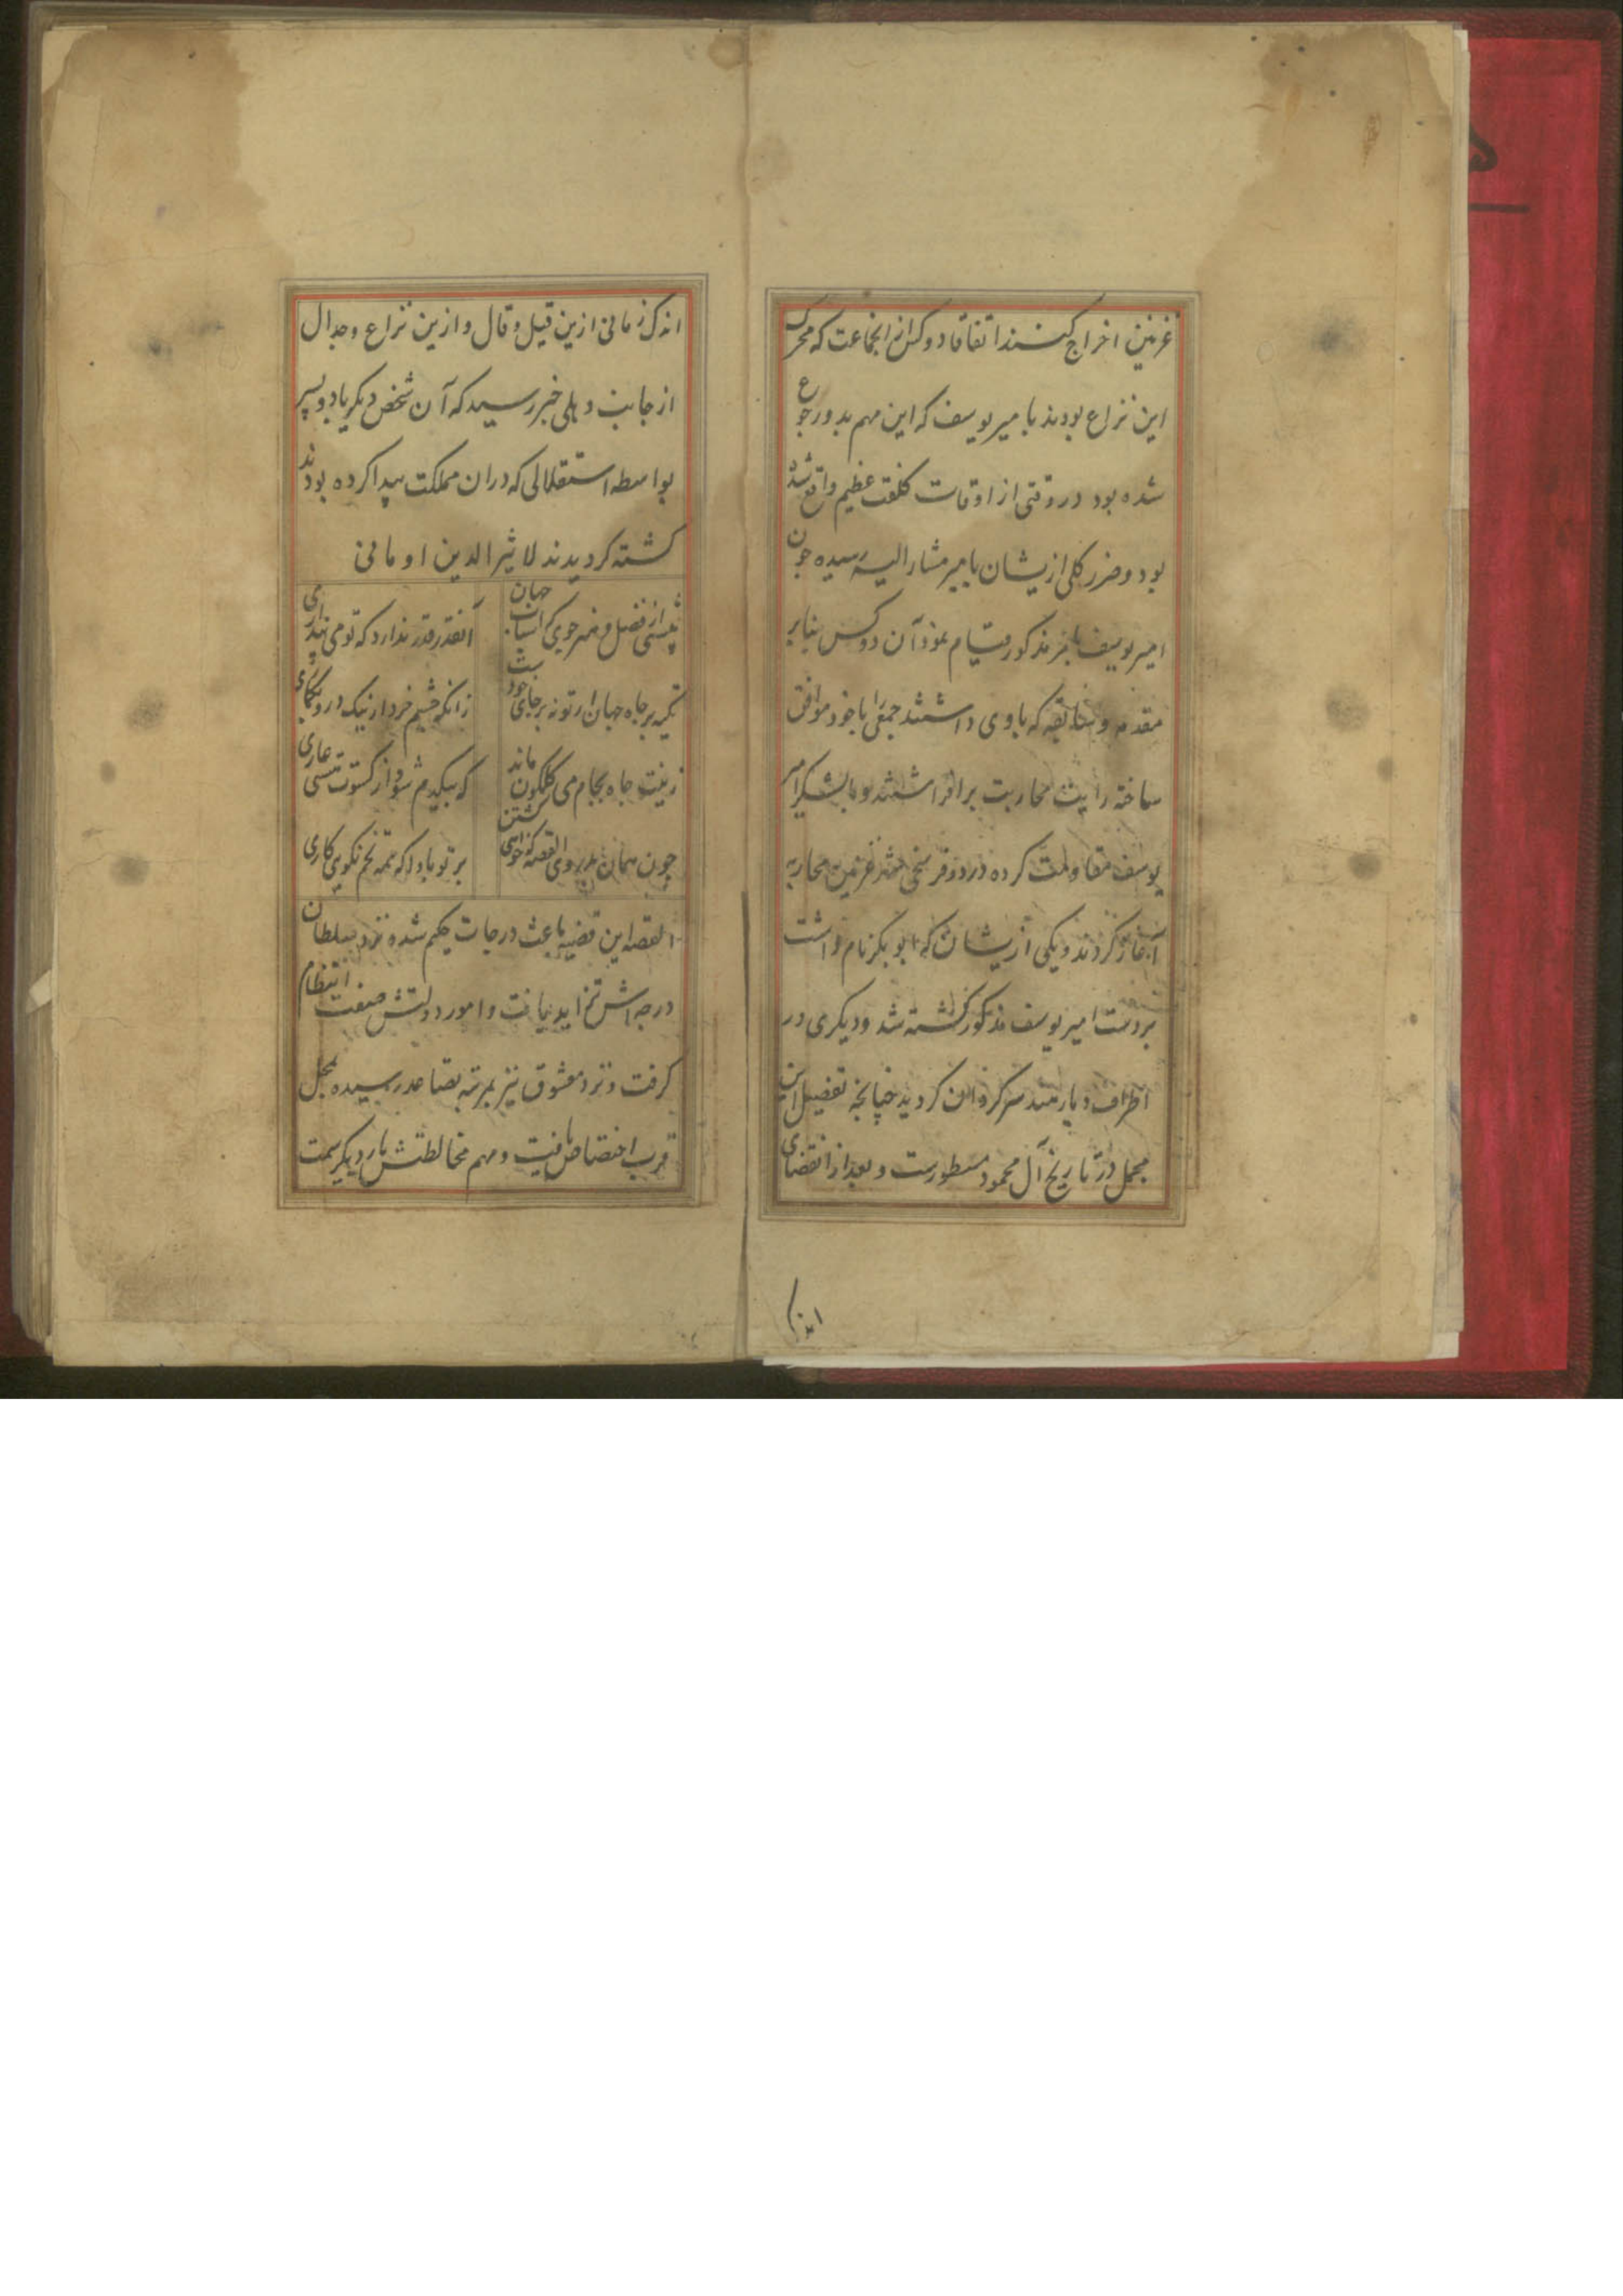 غزنین اخراج کنند اتفاقا دو کس ازان جماعت که محرک
این نزاع بودند با میر یوسف که این مهم بدو رجوع
شده بود در وقتی از اوقات کلفت عظیم واقع شده
بود و ضرر کلی ازیشان بامیر مشار الیه رسیده چون
امیر یوسف بامر مذکور قیام نمود آن دو کس بنابر
مقدمه سابقه که با وی داشتند جمعی را با خود موافق
ساخته رایت محاربت برافراشتند و با لشکر امیر
یوسف مقاومت کرده در دو فرسخی غزنین محاربه
آغاز کردند و یکی ازیشان که ابوبکر نام داشت
بردست امیر یوسف مذکور کشته شد و دیکری در
اطراف دیار هند سرکردان کردید چنانچه تفصیل این
مجمل در تاریخ آل محمود مسطورست و بعد از انقضای
اندک
اندک زمانی ازین قیل و قال و ازین نزاع و جدال
از جانب دهلی خبر رسید که آن شخص دیکر با دو پسر
بواسطه استقلالی که دران مملکت پیدا کرده بودند
کشته کردیدند لاثیر الدین اومانی
بیشی از فضل و هنر جوی که اسباب جهان
آنقدر قدر ندارد که تو می پنداری
تکیه بر جاه جهان ار تو نه بر جای خود
زانکه چشم خرد ار نیک درو بکماری
زینت جاه بجام می کلکون ماند
که بیکدم شود از کسوت مستی عاری
چون همان بدروی القصه که خواهی کشتن
بر تو بادا که همه تخم نکویی کاری
القصه این قضیه باعث درجات حکیم شده نزد سلطان
درجه اش تزاید یافت و امور دولتش صفت انتظام
کرفت و نزد معشوق نیز بمرتبه تصاعد رسیده بمحل
قرب اختصاص یافت و مهم مخالطتش بار دیکر سمت